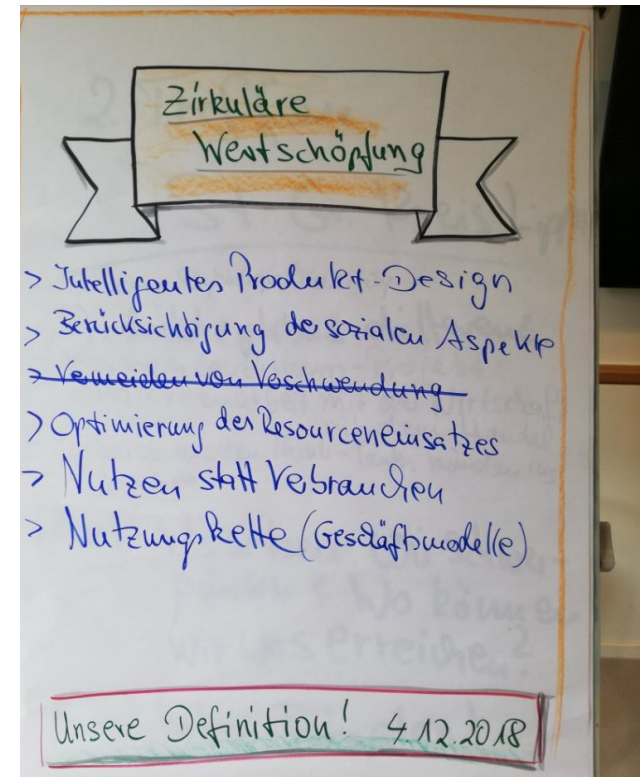 Zirkuläre
Wertschöpfung
> Intelligentes Produkt-Design
> Berücksichtigung de sozialen Aspekte
> Vermeiden von Veschwendung
> Optimierung des Resourceneinsatzes
> Nutzen statt Vebrauchen
> Nutzungskette (Geschäftsmodelle)
Unsere Definition! 4.12.2018